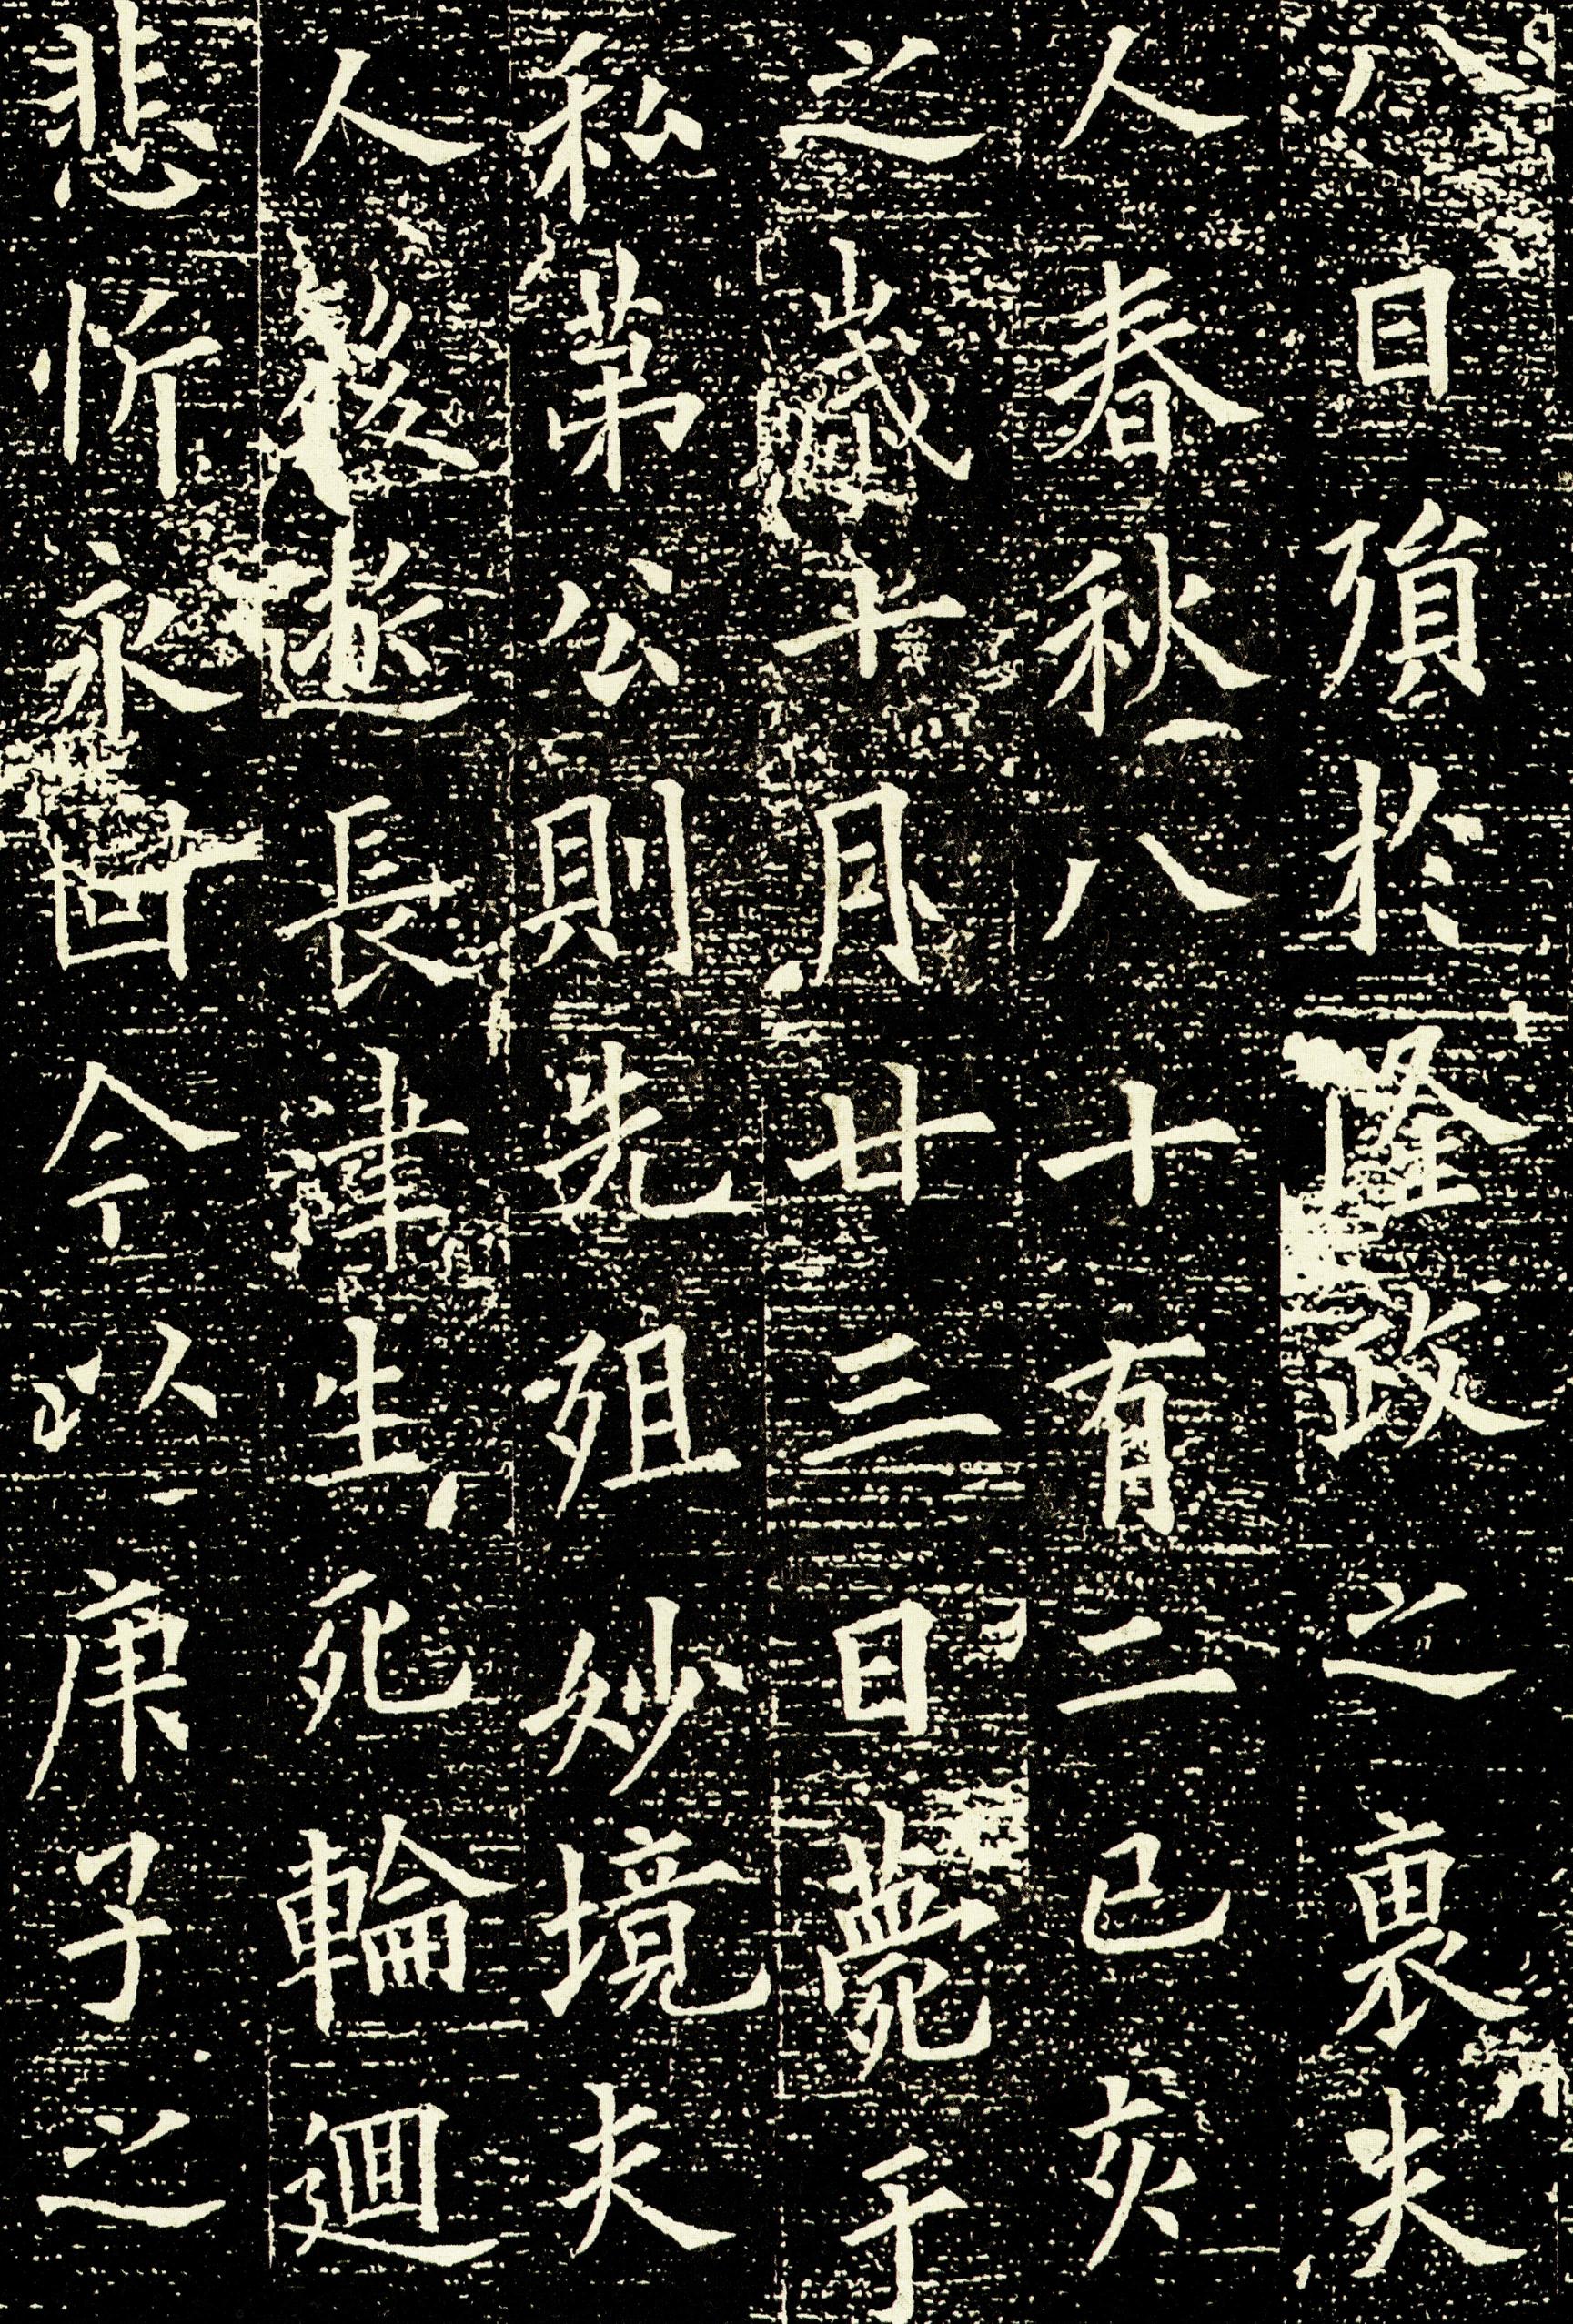 八日殞於隆政之裏夫
人春秋八十有二己亥
之歲十月廿三日薨于
私第公則先殂妙境夫
人後遂長津生死輪迴
悲忻永今以庚子之